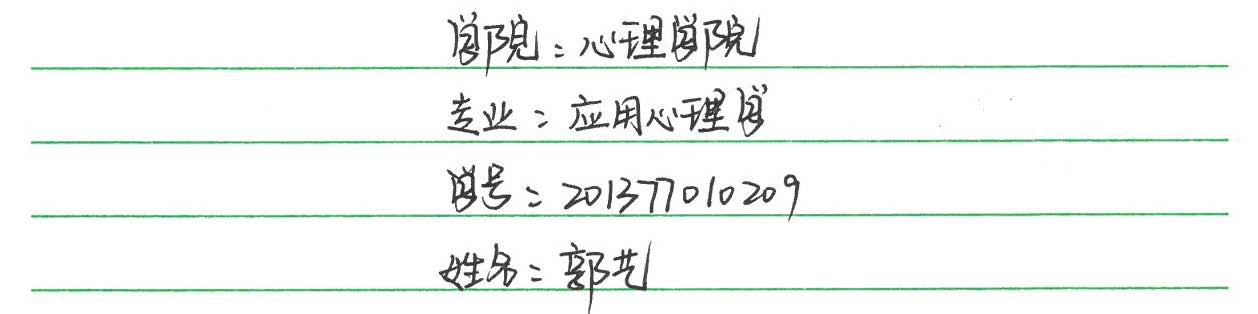 学院：心理学院
专业：应用心理学
学号：201377010209
姓名：郭艺